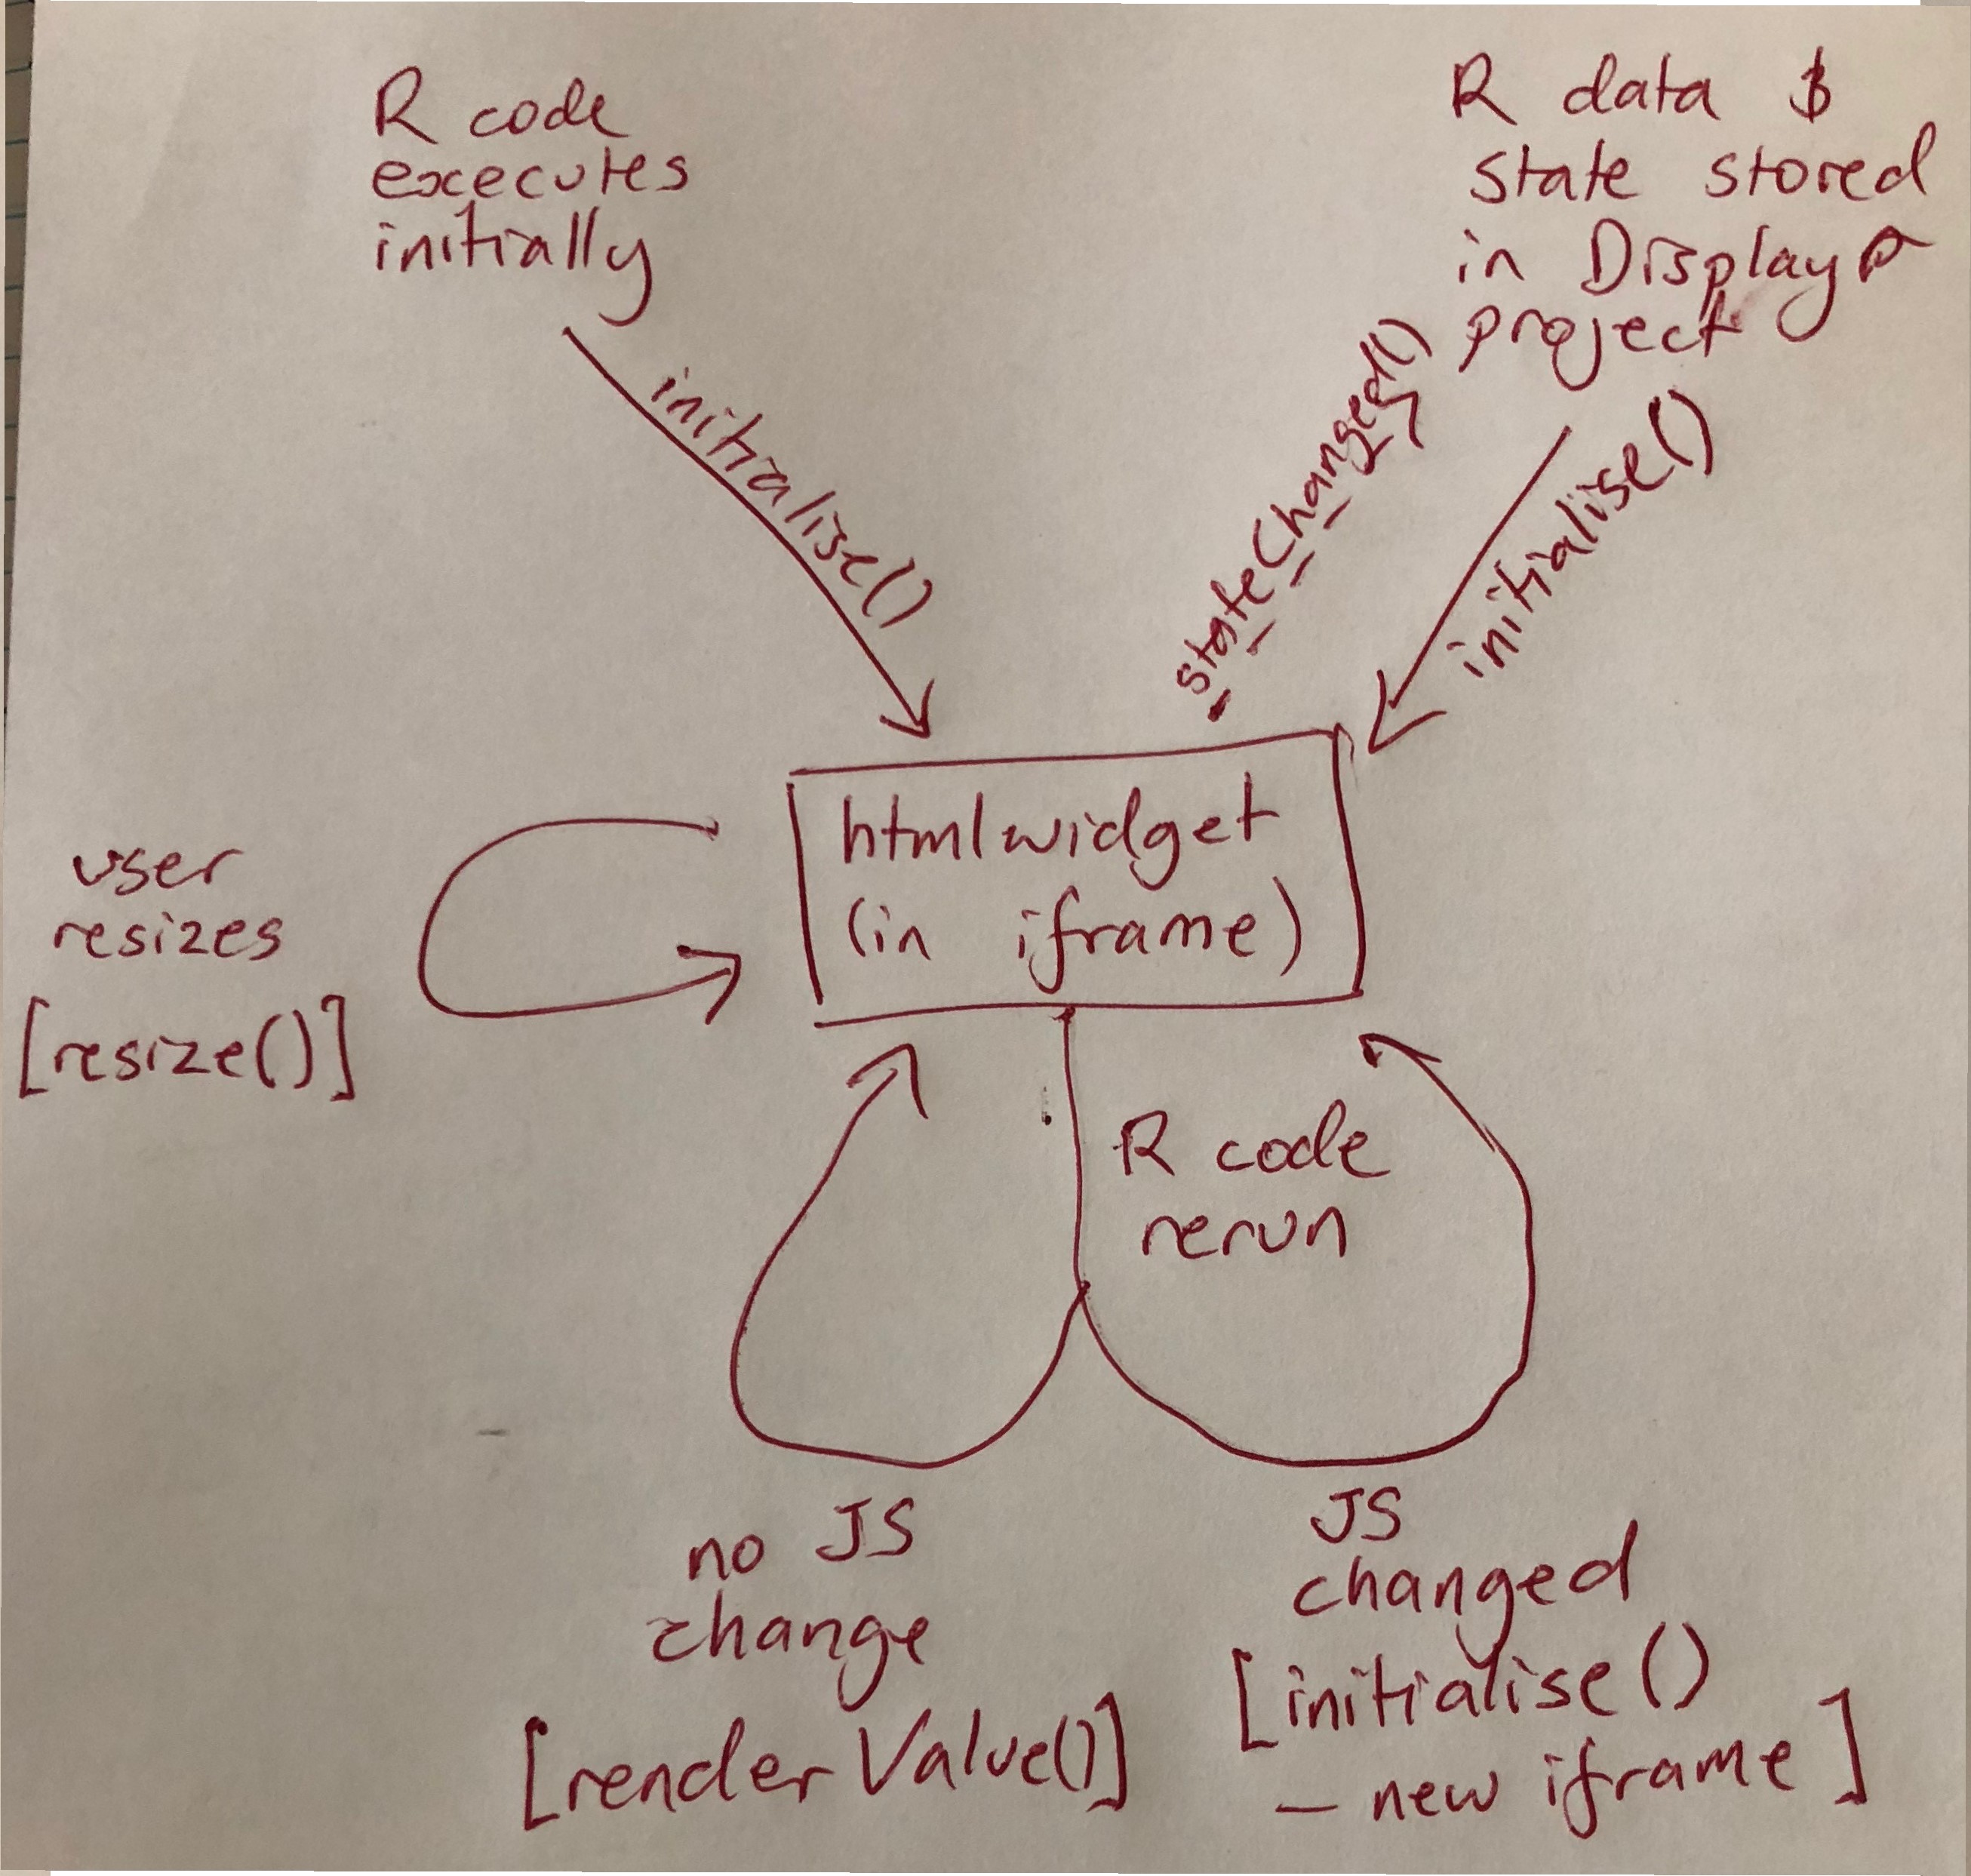 R code
executes
initially
R data &
state stored
in Displayr
project
initialise()
stateChanged()
initialise()
htmlwidget
(in iframe)
user
resizes
[resize()]
R code
rerun
no JS
change
[renderValue()]
JS
changed
[initialise()
– new iframe]